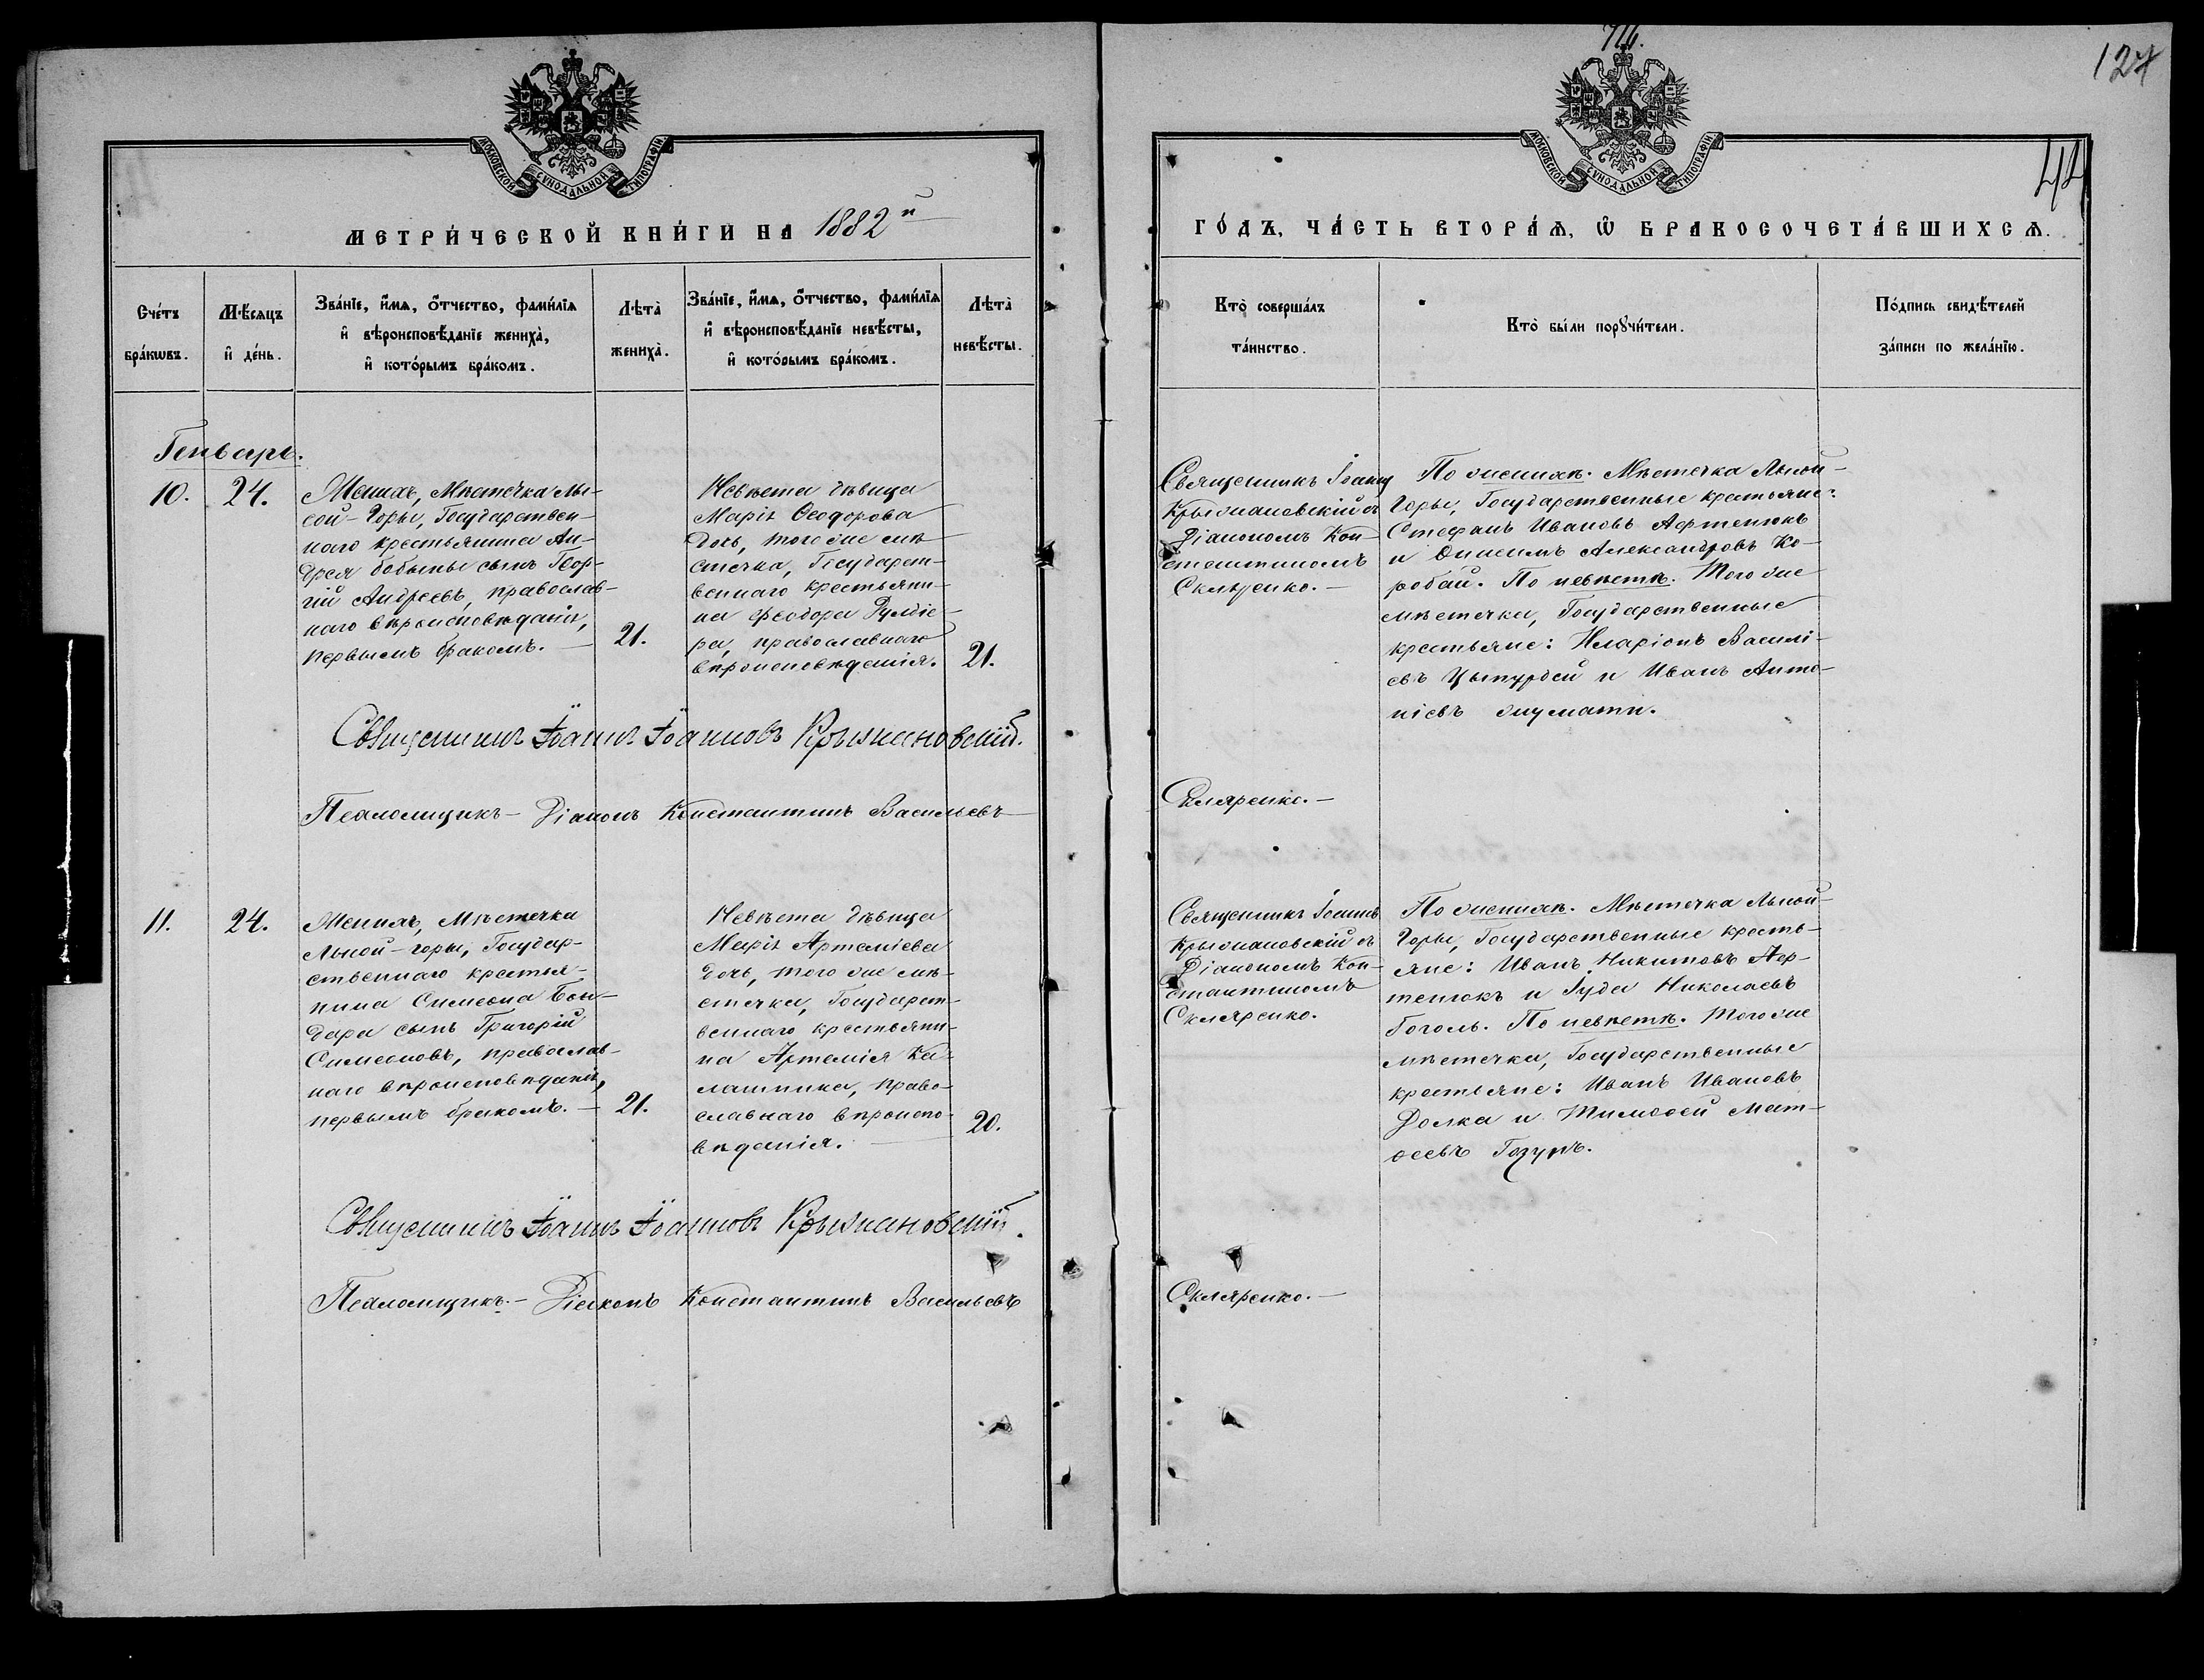 127
МОСКОВСКОЙ СѴНОДАЛЬНОЙ ТИПОГРАФІИ
МОСКОВСКОЙ СѴНОДАЛЬНОЙ ТИПОГРАФІИ
44
МЕТРИ́ЧЕСКОЙ КНИ́ГИ НА 1882й
ГО́ДЪ, ЧА́СТЬ ВТОРА́Ѧ, Ѿ БРАКОСОЧЕТА́ВШИХСѦ.
Сче́тъ
бра́кѡвъ.
Мѣ́сѧцъ
и҆ де́нь.
Зва́нїе, и҆́мѧ, ѻ҆́тчество, фами́лїѧ
и҆ вѣроисповѣ́данїе жениха̀,
и҆ кото́рымъ бра́комъ.
Лѣта̀
жениха̀.
Зва́нїе, и҆́мѧ, ѻ҆́тчество, фами́лїѧ
и҆ вѣроисповѣ́данїе невѣ́сты,
и҆ кото́рымъ бра́комъ.
Лѣта̀
невѣ́сты.
Кто̀ соверша́лъ
та́инство.
Кто̀ бы́ли порꙋчи́тели.
По́дпись свидѣ́телей
за́писи по жела́нїю.
Генварь.
10.
24.
Женихъ, Мѣстечка Лы-
сой-Горы, Государствен-
наго крестьянина Ан-
дрея Бобыны сынъ Геор-
гій Андреевъ, православ-
наго вѣроисповѣданія,
первымъ бракомъ. —
21.
Невѣста дѣвица
Марія Ѳеодорова
дочь, того же мѣ-
стечка, Государст-
веннаго крестьяни-
на Феодора
православнаго
вѣроисповѣданія.
21.
Священникъ Іоаннъ
Крыжановскій съ
Діакономъ Кон-
стантиномъ
Скляренко. —
По женихѣ. Мѣстечка Лысой-
Горы, Государственные крестьяне:
Стефанъ Ивановъ Афтенюкъ
и Онисимъ Александровъ Ко-
робай. По невѣстѣ. Того же
мѣстечка, Государственные
крестьяне: Иларіонъ Василі-
евъ Цыпурдей и Иванъ Анто-
ніевъ
Священникъ Іоаннъ Іоанновъ Крыжановскій.
Псаломщикъ — Діаконъ Константинъ Васильевъ
Скляренко. —
11.
24.
Женихъ, Мѣстечка
Лысой-горы, Государ-
ственнаго крестья-
нина Симеона Бон-
даря сынъ Григорій
Симеоновъ, православ-
наго вѣроисповѣданія,
первымъ бракомъ. —
21.
Невѣста дѣвица
Марія Артеміева
дочь, того же мѣ-
стечка, Государст-
веннаго крестьяни-
на Артемія Ка-
лашника, право-
славнаго вѣроиспо-
вѣданія. —
20.
Священникъ Іоаннъ
Крыжановскій съ
Діакономъ Кон-
стантиномъ
Скляренко.
По женихѣ. Мѣстечка Лысой-
Горы, Государственные кресть-
яне: Иванъ Никитовъ Аф-
тенюкъ и Іуда Николаевъ
Гоголь. По невѣстѣ. Того же
мѣстечка, Государственные
крестьяне: Иванъ Ивановъ
Долка и Тимоѳей Мат-
ѳеевъ Гозунъ.
Священникъ Іоаннъ Іоанновъ Крыжановскій.
Псаломщикъ. — Діаконъ Константинъ Васильевъ
Скляренко. —